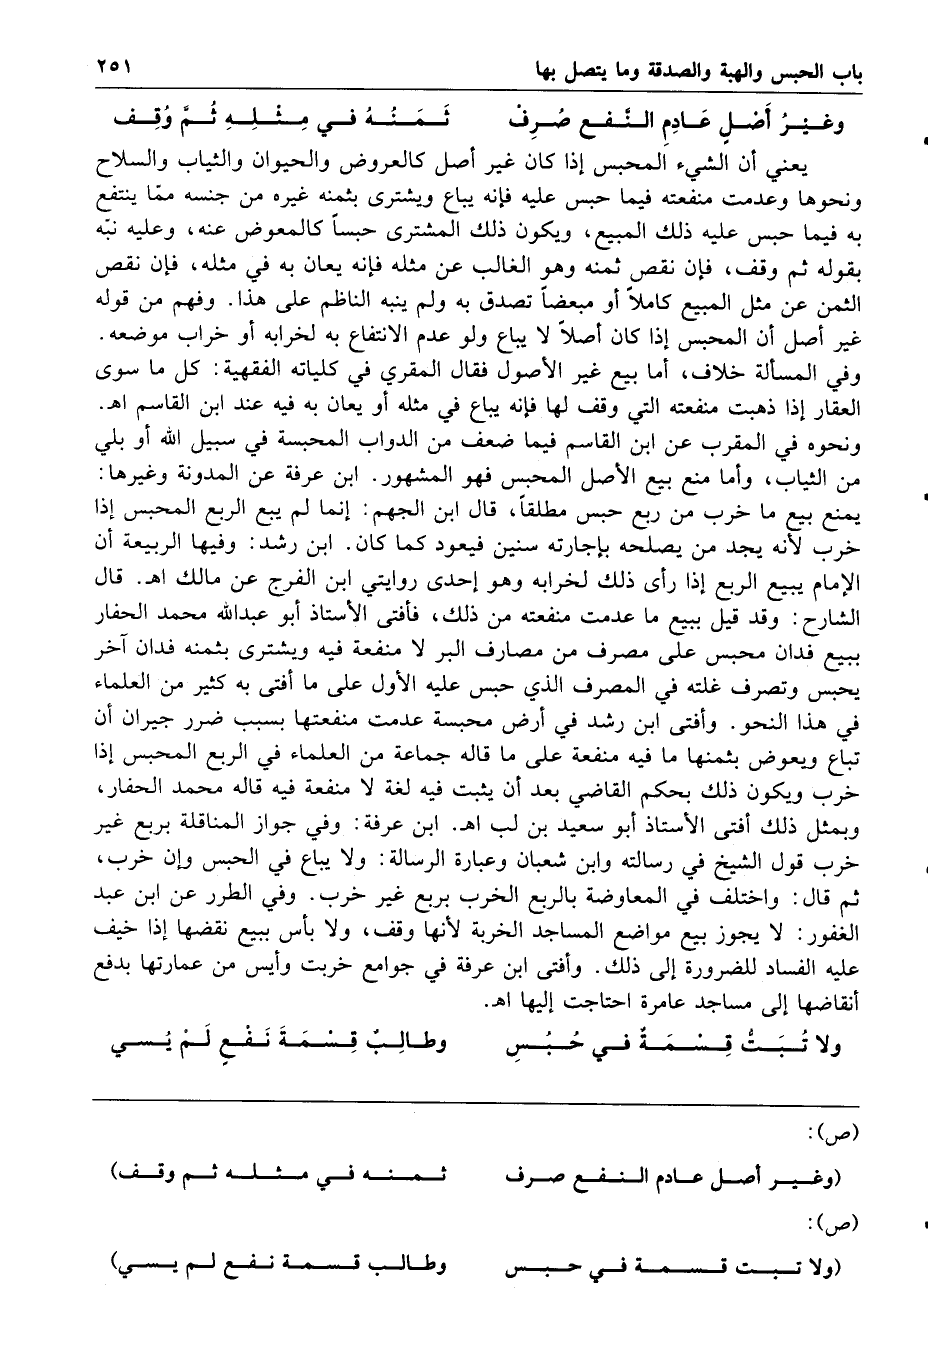 باب الحبس والهبة والصدقة وما يتصل بها ٢٥١
وغَيرُ أَصْلٍ عَادِمِ النَّفعِ صُرِفْ ثَمَنُهُ في مِثْلِهِ ثُمَّ وُقِف
يعني أن الشيء المحبس إذا كان غير أصل كالعروض والحيوان والثياب والسلاح
ونحوها وعدمت منفعته فيما حبس عليه فإنه يباع ويشترى بثمنه غيره من جنسه ممّا ينتفع
به فيما حبس عليه ذلك المبيع، ويكون ذلك المشترى حبساً كالمعوض عنه، وعليه نبّه
بقوله ثم وقف، فإن نقص ثمنه وهو الغالب عن مثله فإنه يعان به في مثله، فإن نقص
الثمن عن مثل المبيع كاملاً أو مبعضاً تصدق به ولم ينبه الناظم على هذا. وفهم من قوله
غير أصل أن المحبس إذا كان أصلاً لا يباع ولو عدم الانتفاع به لخرابه أو خراب موضعه.
وفي المسألة خلاف، أما بيع غير الأصول فقال المقري في كلياته الفقهية: كل ما سوى
العقار إذا ذهبت منفعته التي وقف لها فإنه يباع في مثله أو يعان به فيه عند ابن القاسم اهـ.
ونحوه في المقرب عن ابن القاسم فيما ضعف من الدواب المحبسة في سبيل الله أو بلي
من الثياب، وأما منع بيع الأصل المحبس فهو المشهور. ابن عرفة عن المدونة وغيرها:
يمنع بيع ما خرب من ربع حبس مطلقاً، قال ابن الجهم: إنما لم يبع الربع المحبس إذا
خرب لأنه يجد من يصلحه بإجارته سنين فيعود كما كان. ابن رشد: وفيها الربيعة أن
الإمام يبيع الربع إذا رأى ذلك لخرابه وهو إحدى روايتي ابن الفرج عن مالك اهـ. قال
الشارح: وقد قيل ببيع ما عدمت منفعته من ذلك، فأفتى الأستاذ أبو عبدالله محمد الحفار
ببيع فدان محبس على مصرف من مصارف البر لا منفعة فيه ويشترى بثمنه فدان آخر
يحبس وتصرف غلته في المصرف الذي حبس عليه الأول على ما أفتى به كثير من العلماء
في هذا النحو. وأفتى ابن رشد في أرض محبسة عدمت منفعتها بسبب ضرر جيران أن
تباع ويعوض بثمنها ما فيه منفعة على ما قاله جماعة من العلماء في الربع المحبس إذا
خرب ويكون ذلك بحكم القاضي بعد أن يثبت فيه لغة لا منفعة فيه قاله محمد الحفار،
وبمثل ذلك أفتى الأستاذ أبو سعيد بن لب اهـ. ابن عرفة: وفي جواز المناقلة بربع غير
خرب قول الشيخ في رسالته وابن شعبان وعبارة الرسالة: ولا يباع في الحبس وإن خرب،
ثم قال: واختلف في المعاوضة بالربع الخرب بربع غير خرب. وفي الطرر عن ابن عبد
الغفور: لا يجوز بيع مواضع المساجد الخربة لأنها وقف، ولا بأس ببيع نقضها إذا خيف
عليه الفساد للضرورة إلى ذلك. وأفتى ابن عرفة في جوامع خربت وأيس من عمارتها بدفع
أنقاضها إلى مساجد عامرة احتاجت إليها اهـ.
ولا تُبَتُّ قِسْمَةٌ في حُبُسِ وطالِبٌ قِسْمَةَ نَفْعٍ لَمْ يُسي
(ص):
(وغير أصل عادم النفع صرف ثمنه في مثله ثم وقف)
(ص):
(ولا تبت قسمة في حبس وطالب قسمة نفع لم يسي)